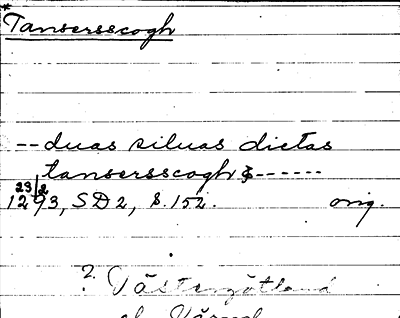 *Tansersscogh
-- duas siluas dictas
tansersscogh ------
23/2
1293, SD 2, s. 152. orig.
? Västergötland
el. Värend